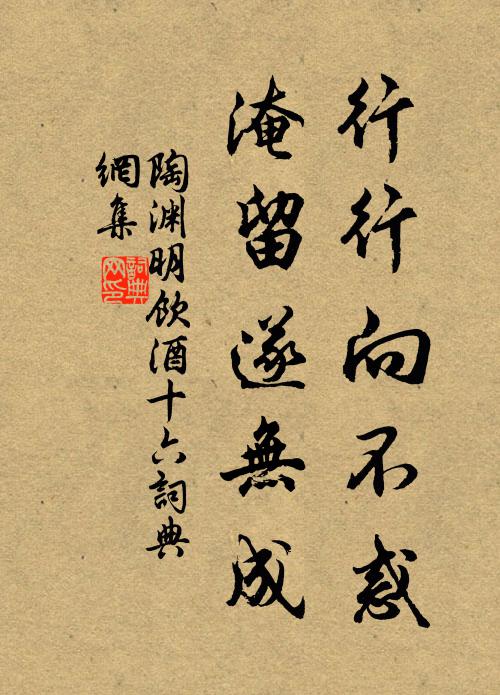 行行向不惑
淹留遂無成
陶淵明飲酒十六詞典
網集
詞典
网印